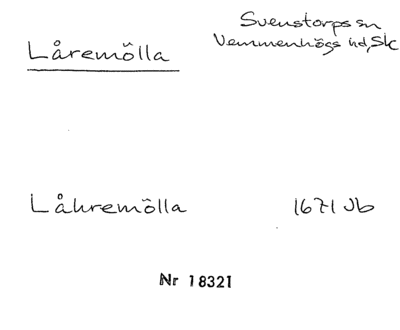 Svenstorps sn
Låremölla
Vemmenhögs hd, Sk
Låhremölla 1671 Jb
Nr 18321